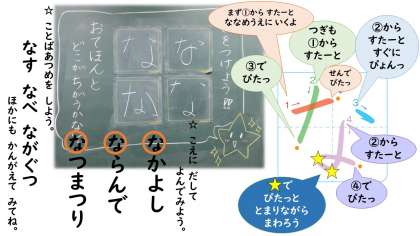 ☆ ことばあつめを しよう。
なす なべ ながぐつ
ほかにも かんがえて みてね。
をつけよう
おてほんと
どこがちがうかな
な な
な な
☆ こえに だして
よんでみよう。
なかよし
ならんで
なつまつり
まず①から すたーと
ななめうえに いくよ
つぎも
①から
すたーと
②から
すたーと
すぐに
ぴょんっ
③で
ぴたっ
せんで
ぴたっ
1
2
3
4
②から
すたーと
④で
ぴたっ
★で
ぴたっと
とまりながら
まわろう